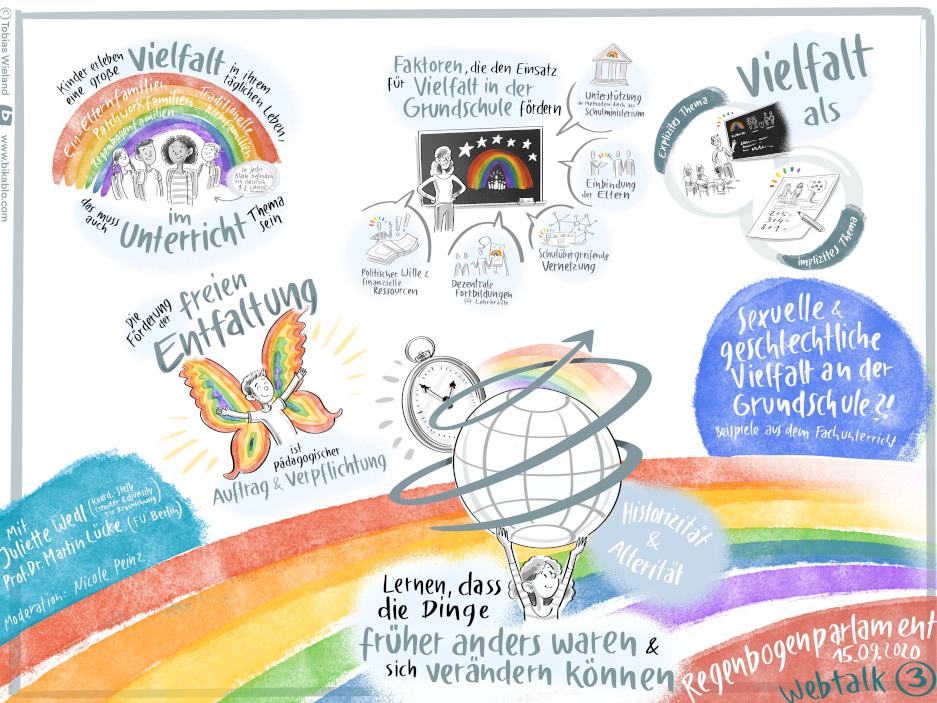 © Tobias Wieland b www.bikablo.com
Kinder erleben
eine große
Vielfalt
in ihrem
täglichen Leben,
Ein-Elternfamilien
Patchworkfamilien
Regenbogenfamilien
Traditionelle
Kleinfamilien
in jeder
Klasse
das muss
auch
im
Unterricht
Thema
sein
Faktoren, die den Einsatz
für Vielfalt in der
Grundschule fördern
Unterstützung
Schulministerium
Einbindung
der Eltern
Schulübergreifende
Vernetzung
Dezentrale
Fortbildungen
für Lehrkräfte
Politischer Wille &
finanzielle
Ressourcen
Vielfalt
als
Explizites Thema
2+5=
3+4=
8+1=
implizites Thema
Die
Förderung
der
freien
Entfaltung
ist
pädagogischer
Auftrag & Verpflichtung
Sexuelle &
geschlechtliche
Vielfalt an der
Grundschule?!
Beispiele aus dem Fachunterricht
mit
Juliette Wedl (Koord.-Stelle
Gender & diversity
TU Braunschweig)
Prof. Dr. Martin Lücke (FU Berlin)
Moderation: Nicole Peinz
Historizität
&
Allerität
Lernen, dass
die Dinge
früher anders waren &
sich verändern können
Regenbogenparlament
15.09.2020
Webtalk 3